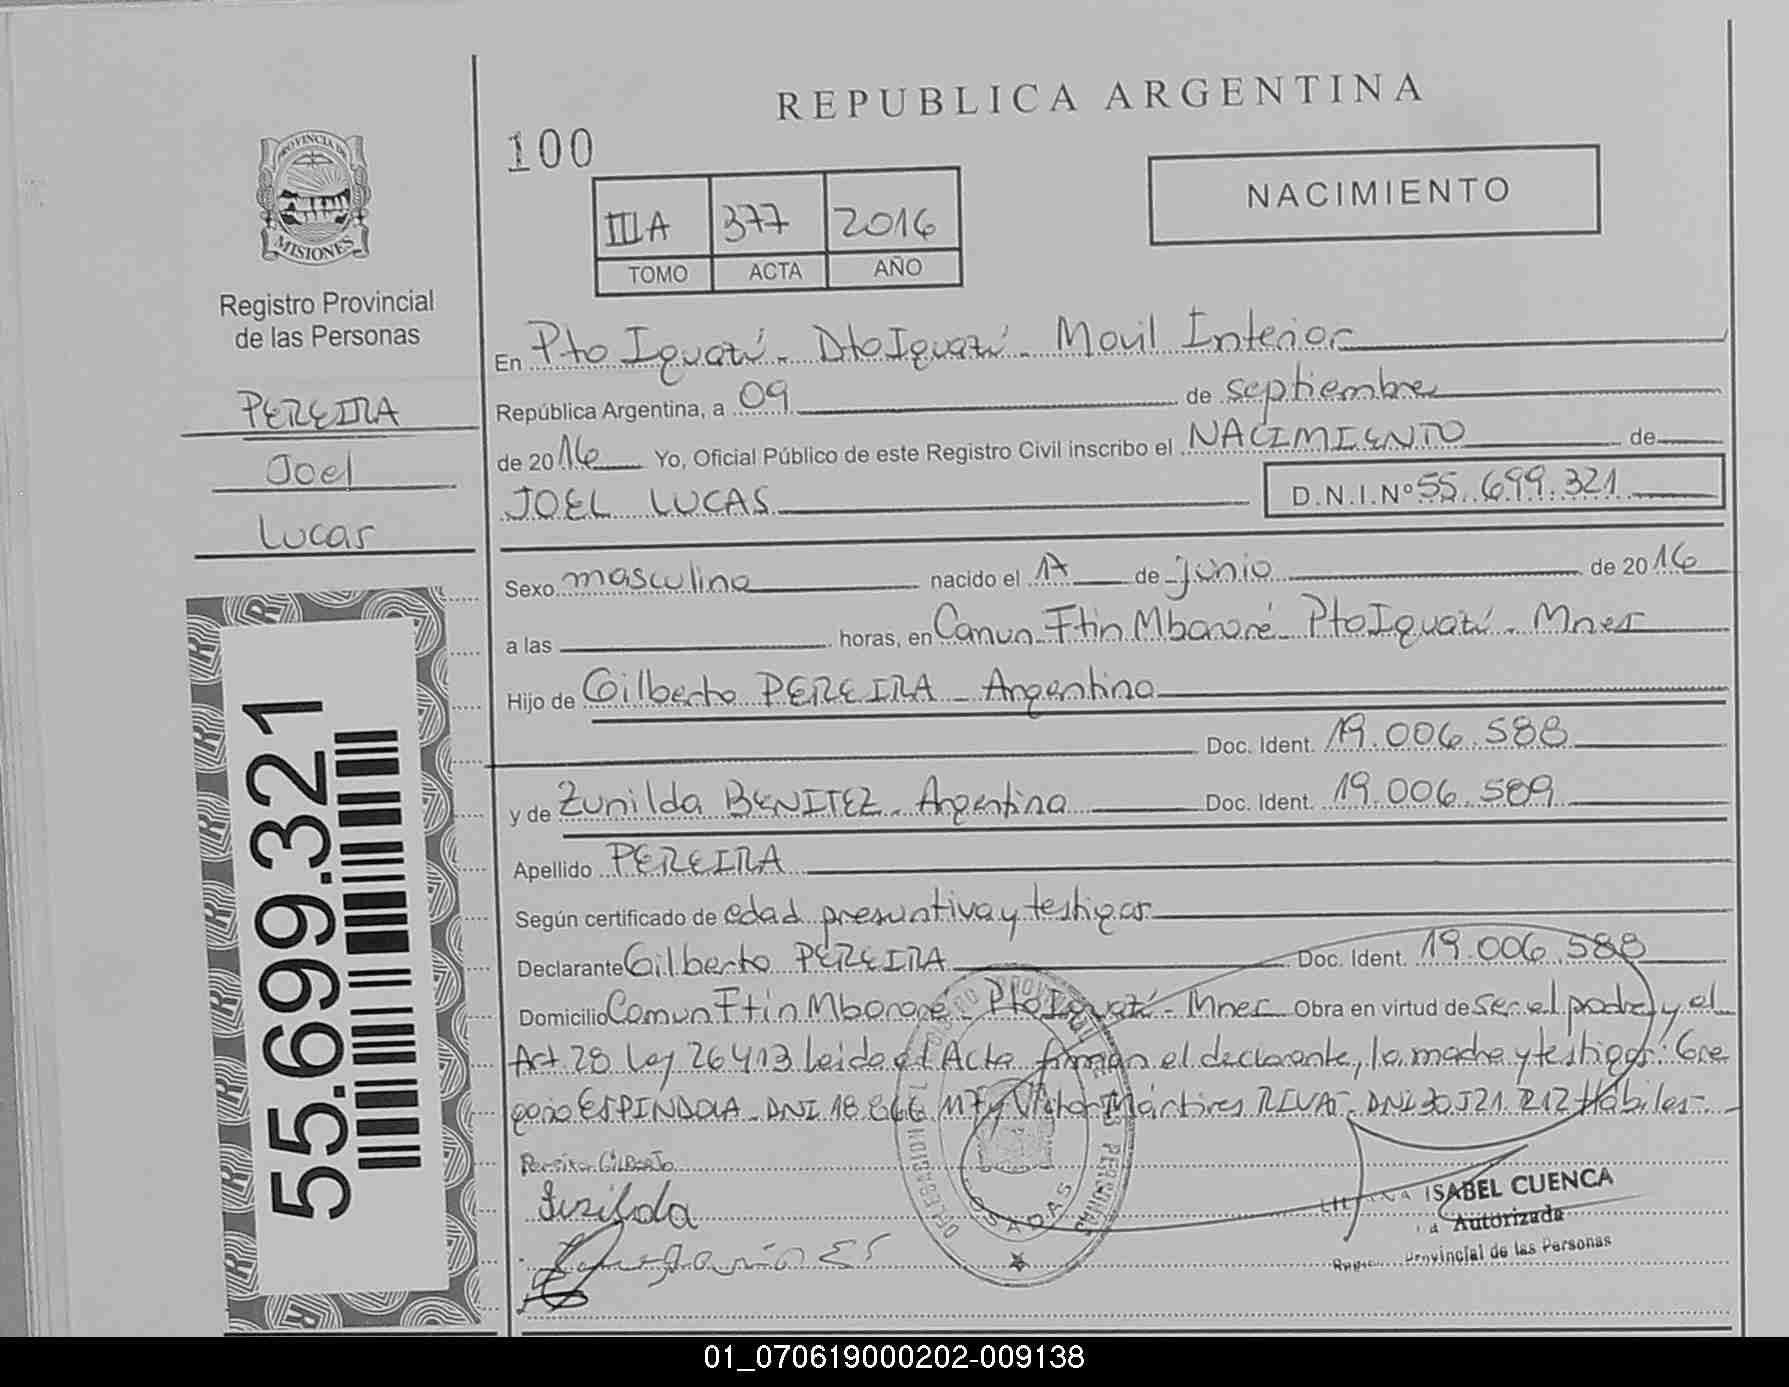 REPUBLICA ARGENTINA
100
NACIMIENTO
IIIA 377 2016
TOMO ACTA AÑO
PROVINCIA DE
MISIONES
Registro Provincial
de las Personas
PEREIRA
Joel
Lucas
55.699.321
En Pto Iguazú - Dto Iguazú - Movil Interior
República Argentina, a 09 de septiembre
de 2016 Yo, Oficial Público de este Registro Civil inscribo el NACIMIENTO de
JOEL LUCAS D.N.I.Nº 55.699.321
Sexo masculino nacido el 17 de junio de 2016
a las horas, en Comun Ftin Mbororé - Pto Iguazú - Mnes
Hijo de Gilberto PEREIRA - Argentina
Doc. Ident. 19.006.588
y de Zunilda BENITEZ - Argentina Doc. Ident. 19.006.589
Apellido PEREIRA
Según certificado de edad presuntiva y testigos
Declarante Gilberto PEREIRA Doc. Ident. 19.006.588
Domicilio Comun Ftin Mbororé - Pto Iguazú - Mnes Obra en virtud de ser el padre y el
Art 28 Ley 26413 Leida el Acta firman el declarante, la madre y testigos: Gre
gorio ESPINDOLA - DNI 18.866.117 y Victor Mártires RIVAS - DNI 30.521.212 Hábiles -
Pereira GILBERTO
ISABEL CUENCA
Autorizada
Provincial de las Personas
POSADAS
01_070619000202-009138